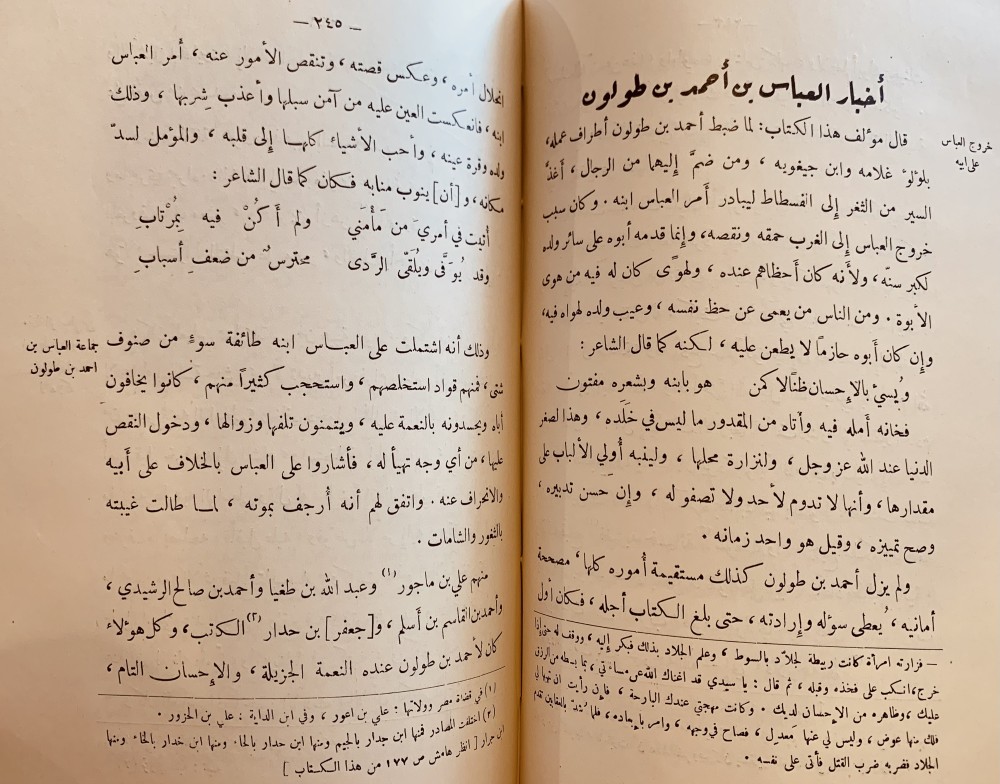 أخبار العباس بن أحمد بن طولون
خروج العباس
على ابيه
قال مؤلف هذا الكتاب: لما ضبط أحمد بن طولون أطراف عمله،
بلؤلؤ غلامه وابن جيغويه ، ومن ضمَّ إليهما من الرجال ، أغذَّ
السير من الثغر إلى الفسطاط ليبادر أمر العباس ابنه . وكان سبب
خروج العباس إلى الغرب حمقه ونقصه، وإنما قدمه أبوه على سائر ولده
لكبر سنّه، ولأنه كان أحظاهم عنده ، ولهوًى كان له فيه من هوى
الأبوة . ومن الناس من يعمى عن حظ نفسه ، وعيب ولده لهواه فيه،
وإن كان أبوه حازماً لا يطعن عليه ، لكنه كما قال الشاعر :
ويُسيءُ بالإحسان ظنًّا لا كمن هو بابنه وبشعره مفتون
فخانه أمله فيه وأتاه من المقدور ما ليس في خَلَده ، وهذا لصغر
الدنيا عند الله عز وجل ، ولنزارة محلها ، ولينبه أُولي الألباب على
مقدارها، وأنها لا تدوم لأحد ولا تصفو له ، وإن حسن تدبيره ،
وصح تمييزه ، وقيل هو واحد زمانه .
ولم يزل أحمد بن طولون كذلك مستقيمة أُموره كلها، مصححة
أمانيه ، يُعطى سؤله وإرادته ، حتى بلغ الكتاب أجله ، فكان أول
— فزارته امرأة كانت ربيطة لجلاّد بالسوط ، وعلم الجلاد بذلك فبكر إليه ، ووقف له حتى إذا
خرج، انكب على فخذه وقبله ، ثم قال : يا سيدي قد اغناك الله عن مساءتي ، بما بسطه من الرزق
عليك ، وظاهره من الإحسان لديك . وكانت مهجتي عندك البارحة ، فإن رأيت ان تهبها لي
فلك منها عوض ، وليس لي عنها معديل ، فصاح في وجهه ، وامر بإبعاده، فلما
الجلاد فضربه ضرب القتل فأتى على نفسه .
— ٢٤٥ —
انحلال أمره ، وعكس قصته ، وتنقص الأمور عنه ، أمر العباس
ابنه ، فانعكست العين عليه من آمن سبلها وأعذب شِربها ، وذلك
ولده وقرة عينه ، وأحب الأشياء كلها إلى قلبه ، والمؤمل لسدّ
مكانه ، و[أن] ينوب منابه فكان كما قال الشاعر :
أُتيت في أمريَ من مَأْمَني ولم أَكُنْ فيه بِمُرْتابِ
وقد يُوَقَّى ويُلقَّى الرَّدى محترسٌ من ضعف أسبابِ
وذلك أنه اشتملت على العباس ابنه طائفة سوءٍ من صنوف
جماعة العباس بن
احمد بن طولون
شتى ، فمنهم قواد استخلصهم ، واستحجب كثيراً منهم ، كانوا يخافون
أباه ويحسدونه بالنعمة عليه ، ويتمنون تلفها وزوالها ، ودخول النقص
عليها، من أي وجه تهيأ له ، فأشاروا على العباس بالخلاف على أبيه
والانحراف عنه . واتفق لهم أنه أُرجف بموته ، لما طالت غيبته
بالثغور والشامات .
منهم علي بن ماجور (١) وعبد الله بن طغيا وأحمد بن صالح الرشيدي ،
وأحمد بن القاسم بن أسلم ، و[جعفر] بن حدار (٢) الكاتب ، وكل هؤلاء
كان لأحمد بن طولون عنده النعمة الجزيلة ، والإحسان التام ،
(١) في قضاة مصر وولاتها : علي بن اعور ، وفي ابن الداية : علي بن الخزور .
(٢) اختلفت المصادر فمنها ابن جدار بالجيم ومنها ابن حدار بالحاء ومنها ابن خدار بالخاء ومنها
ابن جرار [ انظر هامش ص ١٧٧ من هذا الكتاب ]